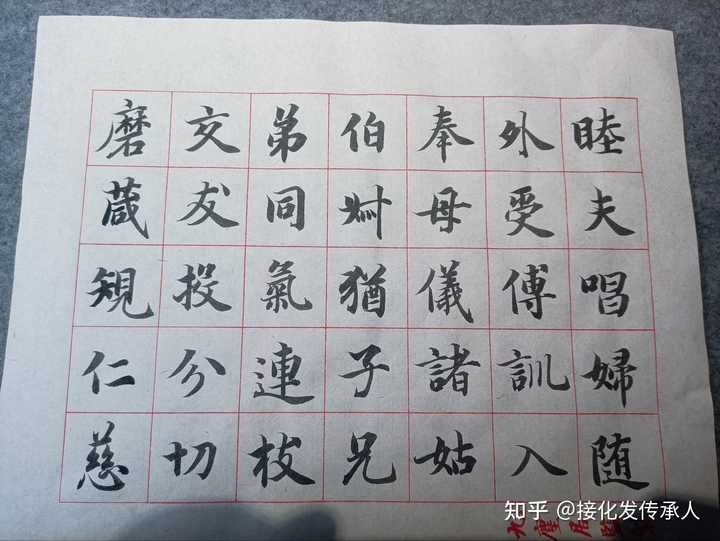 睦夫唱婦随
外受傅訓入
奉母儀諸姑
伯叔猶子兄
弟同氣連枝
交友投分切
磨葴䂓仁慈
知乎 @接化发传承人